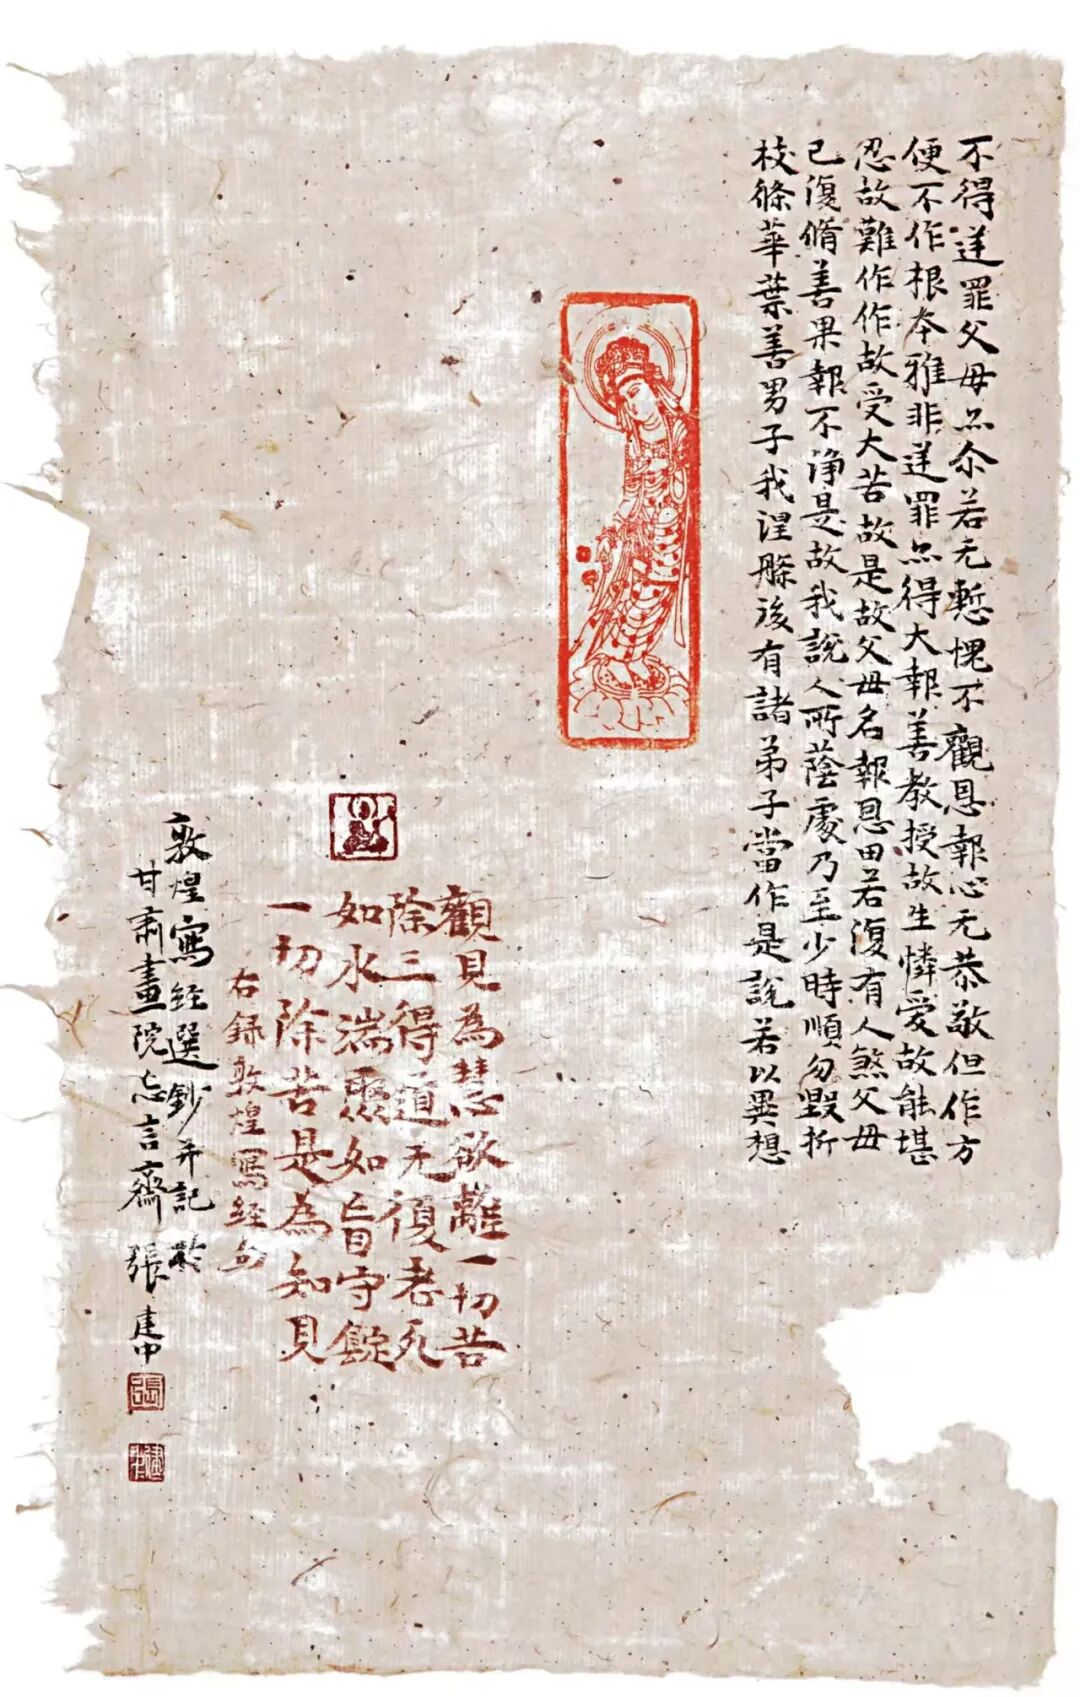 不得逆罪父母亦尒若无慙愧不觀恩報心无恭敬但作方
便不作根本雖非逆罪亦得大報善教授故生憐愛故能堪
忍故難作作故受大苦故是故父母名報恩田若復有人煞父母
已復脩善果報不淨是故我說人所蔭處乃至少時順勿毀折
枝條華葉善男子我涅槃後有諸弟子當作是說若以異想
觀見為慧欲離一切苦
除三得道无復老死
如水湍聚如盲守錠
一切除苦是為知見
右録敦煌寫經句
敦煌寫經選鈔并記於
甘肅畫院忘言齋 張建中
張
建中